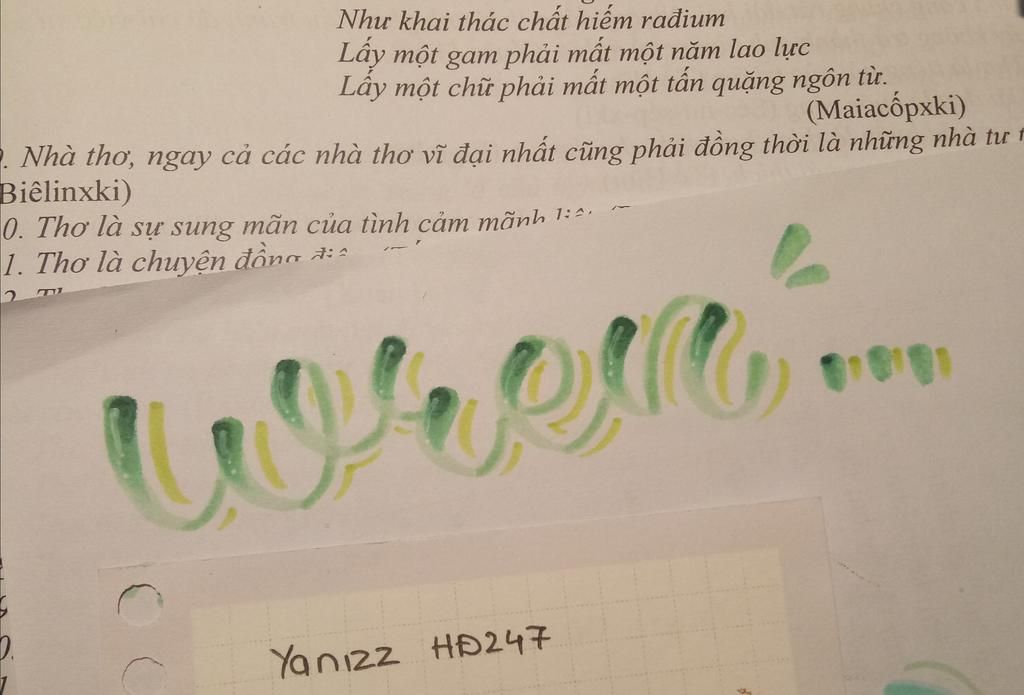 Như khai thác chất hiếm rađium
Lấy một gam phải mất một năm lao lực
Lấy một chữ phải mất một tấn quặng ngôn từ.
(Maiacốpxki)
. Nhà thơ, ngay cả các nhà thơ vĩ đại nhất cũng phải đồng thời là những nhà tư
Biêlinxki)
0. Thơ là sự sung mãn của tình cảm mãnh
1. Thơ là chuyện đồng
Yanizz HĐ247